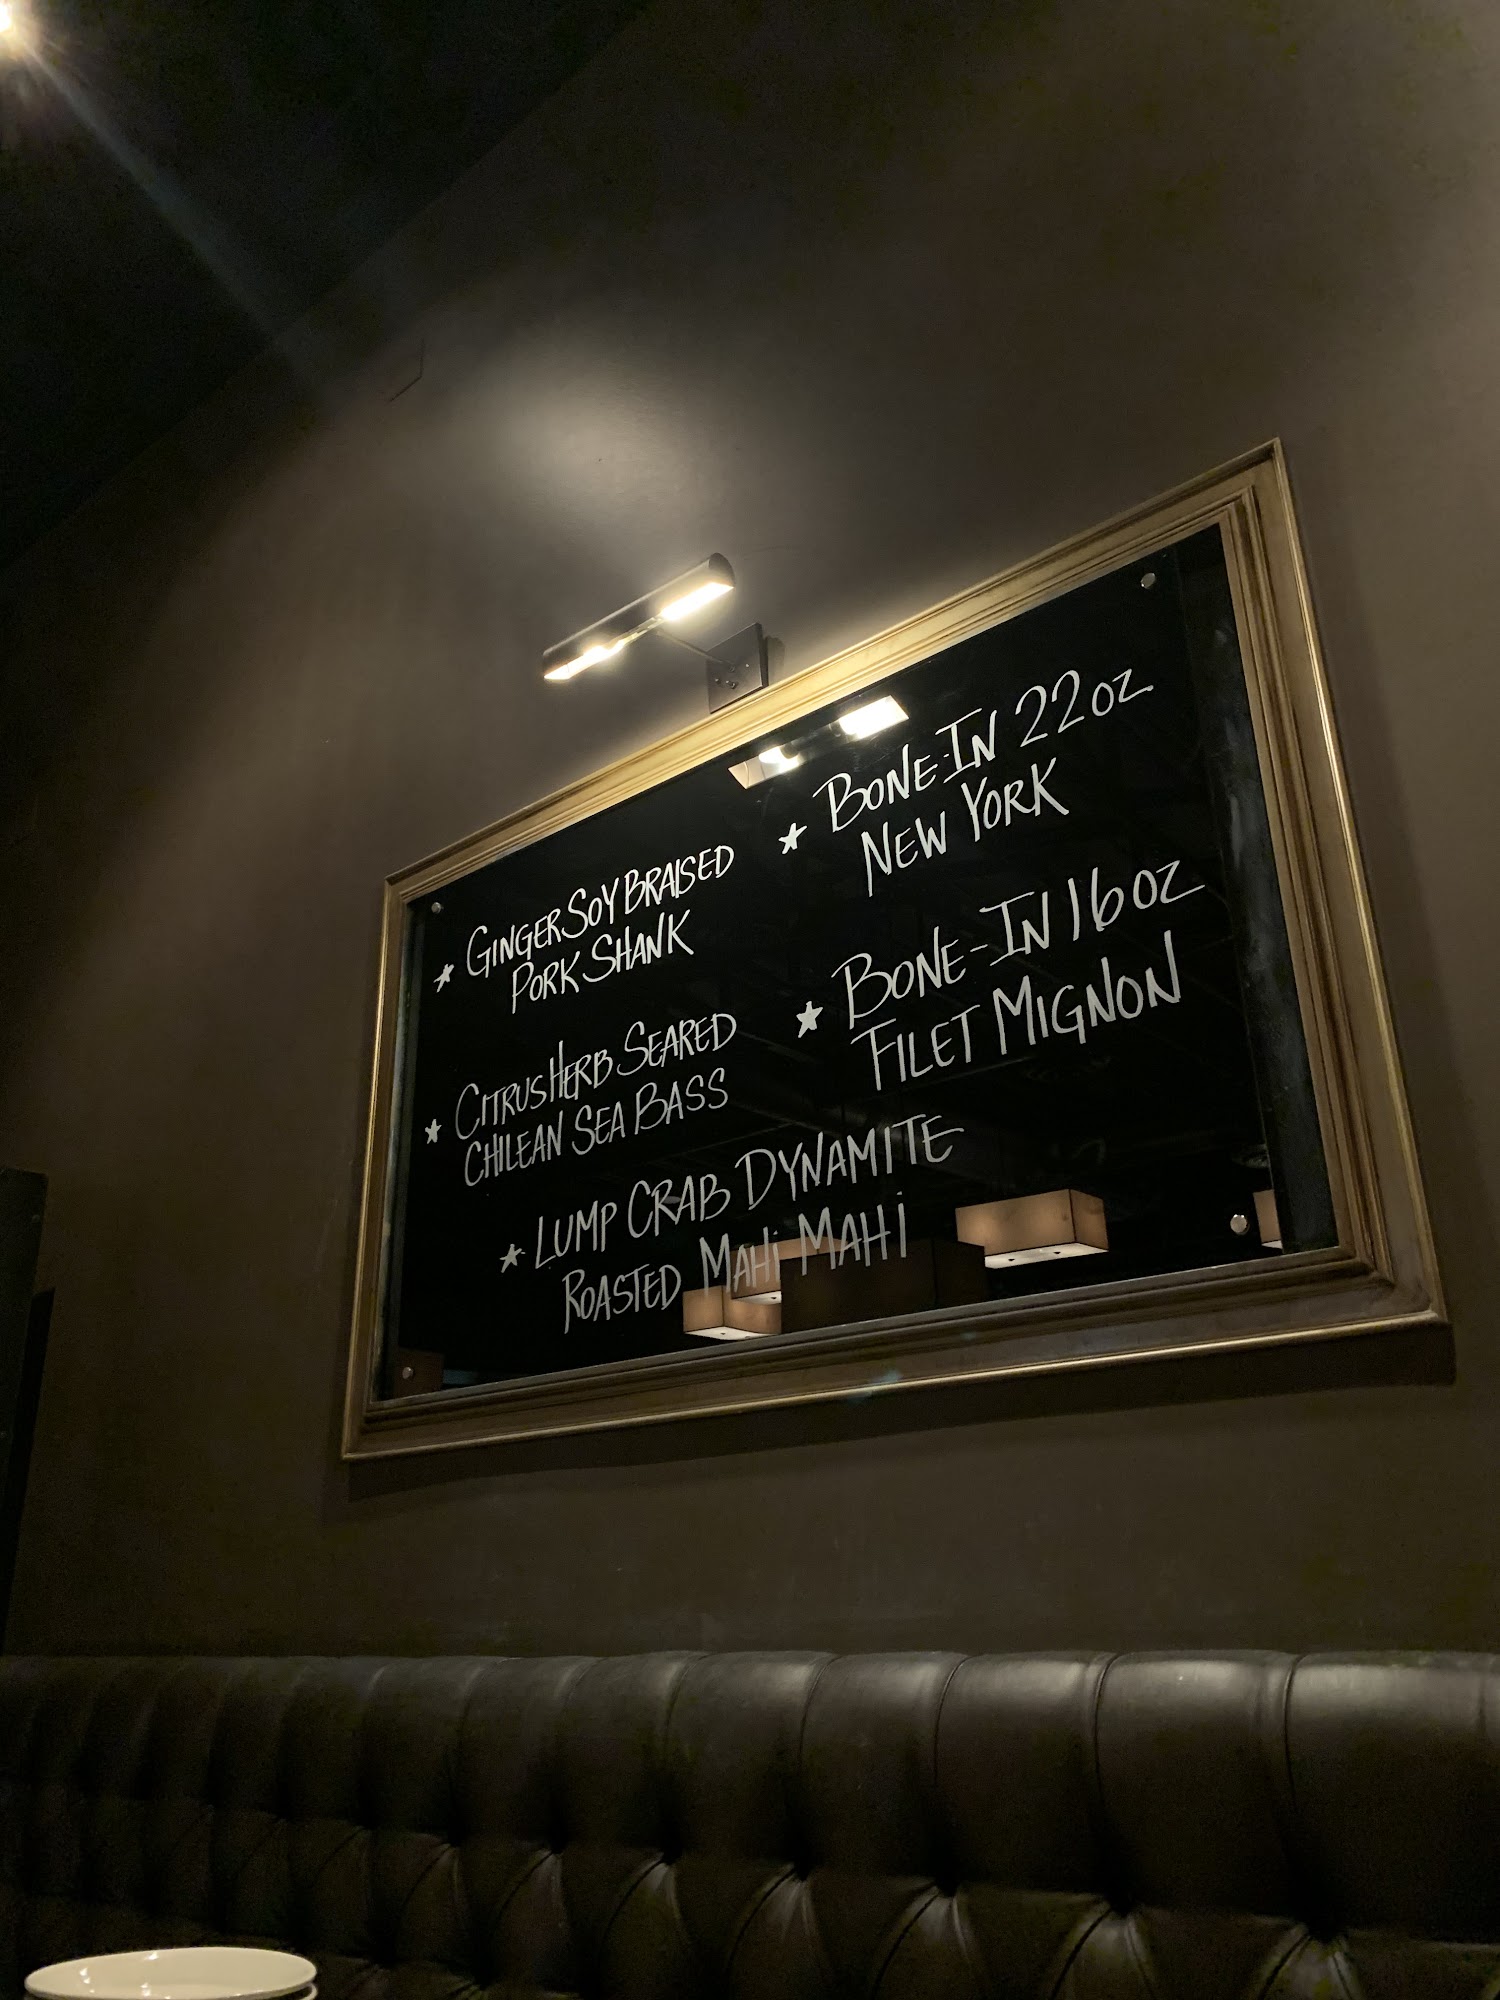 GINGER SOY BRAISED
PORK SHANK
CITRUS HERB SEARED
CHILEAN SEA BASS
LUMP CRAB DYNAMITE
ROASTED MAHI MAHI
BONE-IN 22 OZ
NEW YORK
BONE-IN 16 OZ
FILET MIGNON